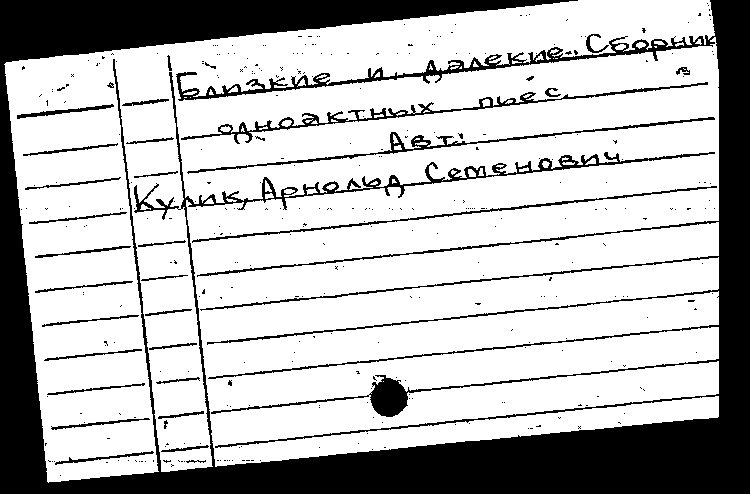 Близкие и далекие. Сборник
одноактных пьес.
Авт.:
Кулик, Арнольд Семенович